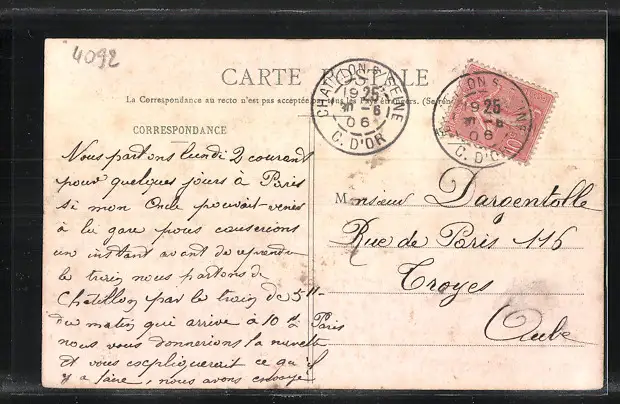 4092
CARTE POSTALE
La Correspondance au recto n'est pas acceptée par tous les Pays étrangers. (Se rens
CHATILLON S SEINE
19 25
6
06
C. D'OR
LLON S
19 25
6
06
C. D'O
10
CORRESPONDANCE
Nous partons lundi 2 courant
pour quelques jours à Paris
si mon Oncle pouvait venir
à la gare nous causerions
un instant avant de reprendre
le train nous partons de
Chatillon par le train de 5 H
du matin qui arrive à 10 Paris
nous vous donnerions la
et vous expliquerait ce qu'il
y a faire, nous avons envoyé
Monsieur Dargentolle
Rue de Paris 116
Troyes
Aube